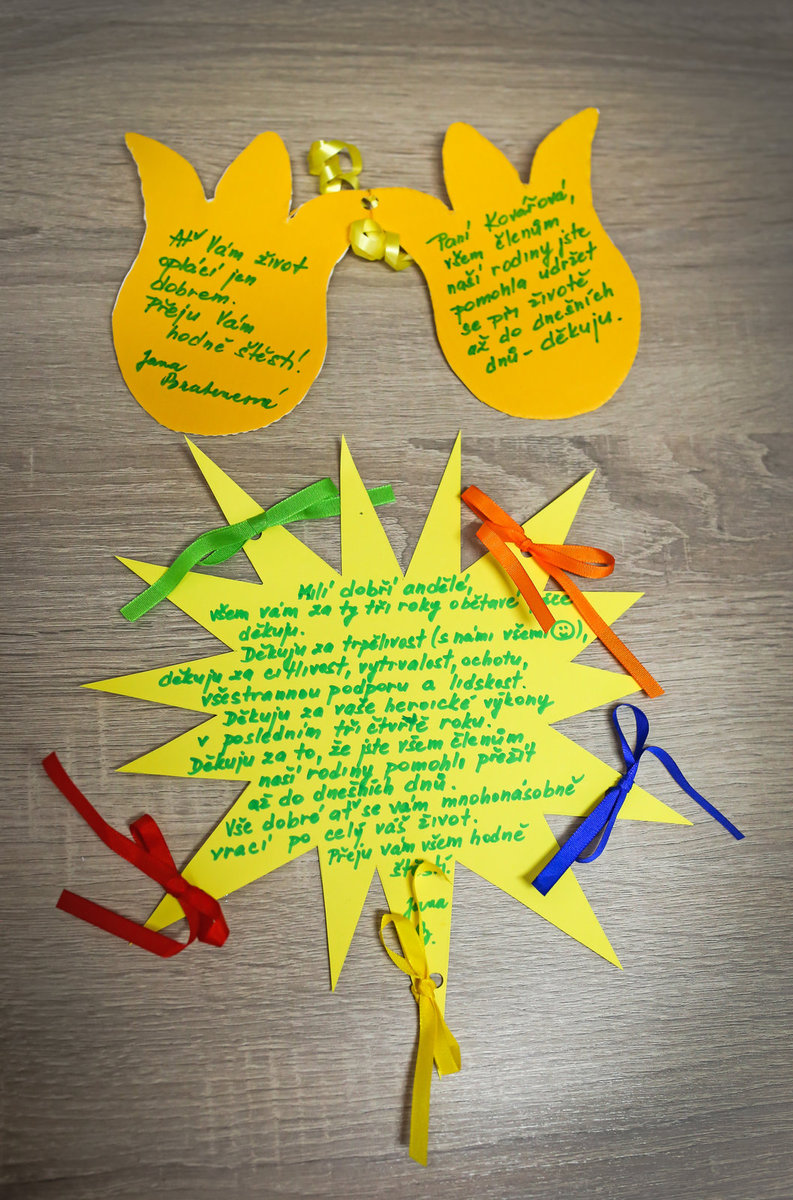 Ať Vám život
oplácí jen
dobrem.
Přeju Vám
hodně štěstí!
Jana
Paní Kovářová,
všem členům
naší rodiny jste
pomohla udržet
se při životě
až do dnešních
dnů - děkuju.
Milí dobří andělé,
všem vám za ty tři roky obětavé
děkuju.
Děkuju za trpělivost (s námi všemi ☺),
děkuju za citlivost, vytrvalost, ochotu,
všestrannou podporu a lidskost.
Děkuju za vaše heroické výkony
v posledním tři čtvrtě roku.
Děkuju za to, že jste všem členům
naší rodiny pomohli přežít
až do dnešních dnů.
Vše dobré ať se vám mnohonásobně
vrací po celý váš život.
Přeju vám všem hodně
štěstí.
Jana